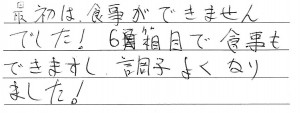 最初は、食事ができません
でした! 6箱目で食事も
できますし、調子よくなり
ました!